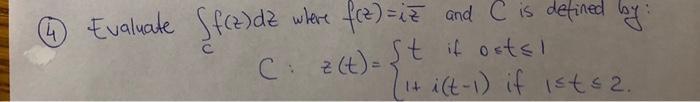 ④ Evaluate ∫_C f(z)dz where f(z)=iz̅ and C is defined by:
C: z(t)= { t if 0≤t≤1
1+i(t-1) if 1≤t≤2.